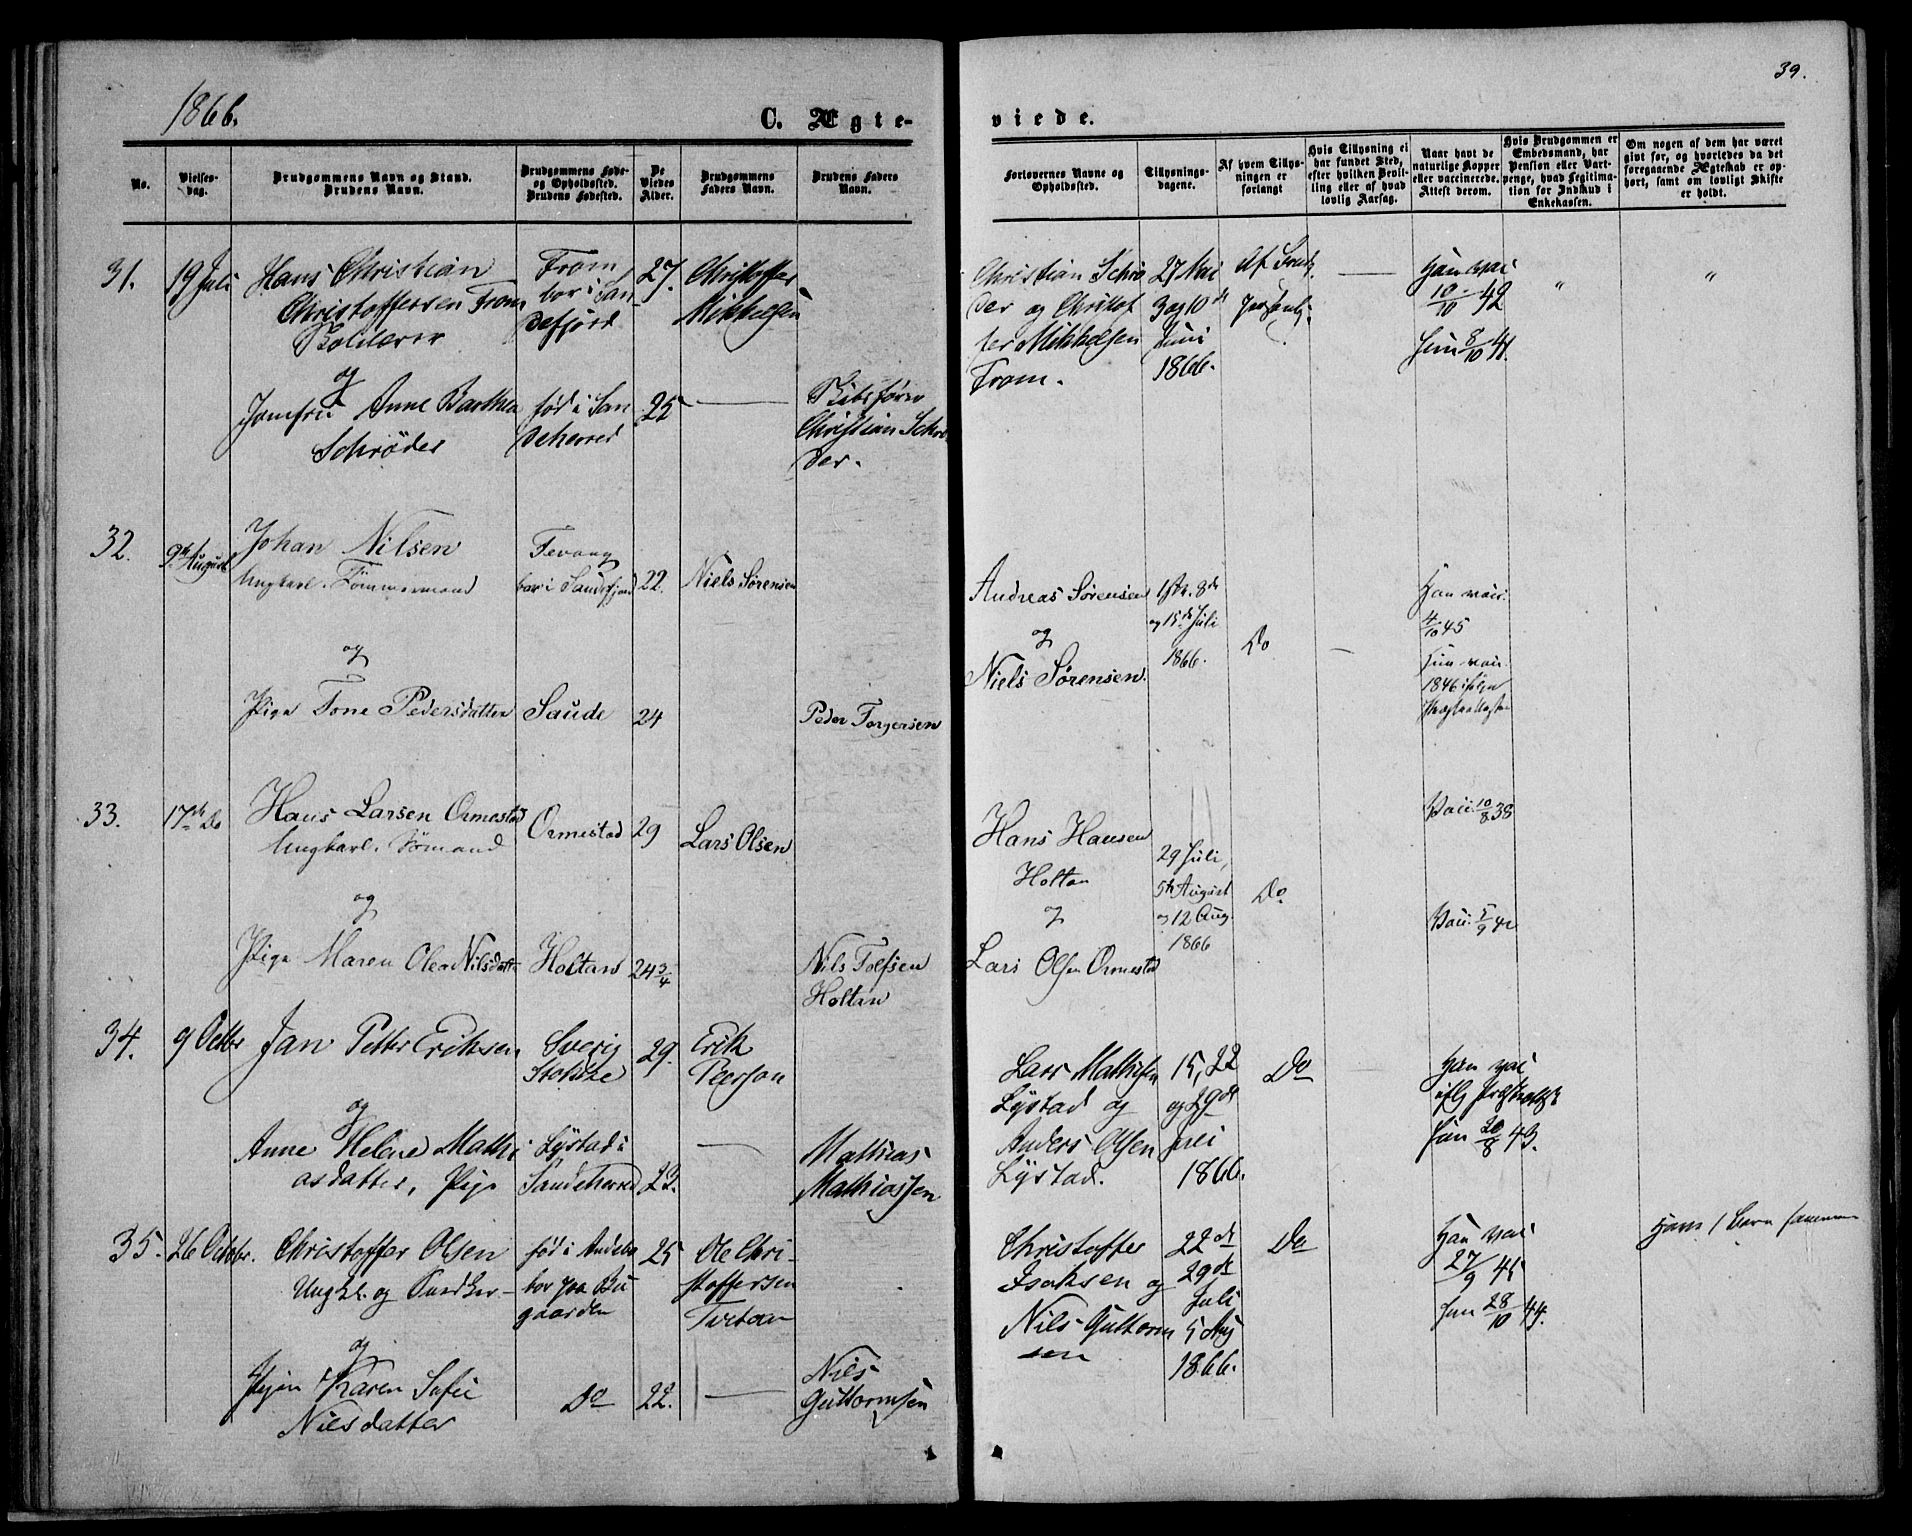 1866.
C. Ægte-
No.
Vielses-
dag.
Brudgommens Navn og Stand.
Brudens Navn.
Brudgommens Føde-
og Opholdssted.
Brudens Fødested.
De
Viedes
Alder.
Brudgommens
Faders Navn.
Brudens Faders
Navn.
31.
19 Juli
Hans Christian
Christoffersen Fram
og
Jomfru Anne Barthea
Schrøder
Fram
bor i San
defjord
født i San
deherred
27.
25
Christoffer
Mikkelsen
Skibsfører
Christian Schrø
der.
32.
9de August
Johan Nilsen
Ungkarl. Tømmermand
og
Pige Tone Pedersdatter
Fevang
bor i Sandefjord
Saude
22.
24
Niels Sørensen
Peder Torgersen
33.
17de Do
Hans Larsen Ormestad
Ungkarl. Sømand
og
Pige Maren Olea Nilsdatter
Ormestad
Holtan
29
24 3/4
Lars Olsen
Nils Tolfsen
Holtan
34.
9 Octbr
Jan Petter Eriksen
og
Anne Helene Mathi
asdatter, Pige
Sverig
Lystad i
Sandeherred
29.
23.
Erik
Peerson
Mathias
Mathiassen
35.
26 Octobr.
Christoffer Olsen
Ungk. og
og
Pigen Karen Sofie
Nilsdatter
født i Andebu
bor paa Bu
gaarden
Do
25
22.
Ole Chri-
stoffersen
Nils
Guttormsen
39.
viede.
Forlovernes Navne og
Opholdssted.
Tillysnings-
dagene.
Af hvem Tillys-
ningen er
forlangt
Hvis Tillysning ei
har fundet Sted,
efter hvilken Bevil-
ling eller af hvad
lovlig Aarsag.
Naar havt de
naturlige Kopper
eller vaccinerede.
Attest derom.
Hvis Brudgommen er
Embedsmand, har
Pension eller Vart-
penge, hvad Legitima-
tion for Indskud i
Enkekassen.
Om nogen af dem har været
gift før, og hvorledes da det
foregaaende Ægteskab er op-
hørt, samt om lovligt Skifte
er holdt.
Christian Schrø
der og Christof
fer Mikkelsen
Fram.
27 Mai
3 og 10de
Juni
1866.
Han vac
10/10 42
Hun 8/10 41.
"
"
Andreas Sørensen
og
Niels Sørensen.
1ste. 8de
og 15de Juli
1866.
Do
Han vac.
4/10 45
Hun vac.
1846 ifølge
Hans Hansen
Holtan
og
Lars Olsen Ormestad
29 Juli,
5te August
og 12 Aug.
1866
Do
Vacc. 10/8 38
Vacc. 5/9 42
Lars Mathisen
Lystad og
Anders Olsen
Lystad.
15, 22
og 29de
1866.
Do
Han vac
Hun 20/8 43.
Christoffer
Isaksen og
Nils Guttorm
sen
22de
29de
Juli
5 Aug
1866.
Do
Han vac
27/9 45
Hun 28/10 44.
Have 1 Barn sammen